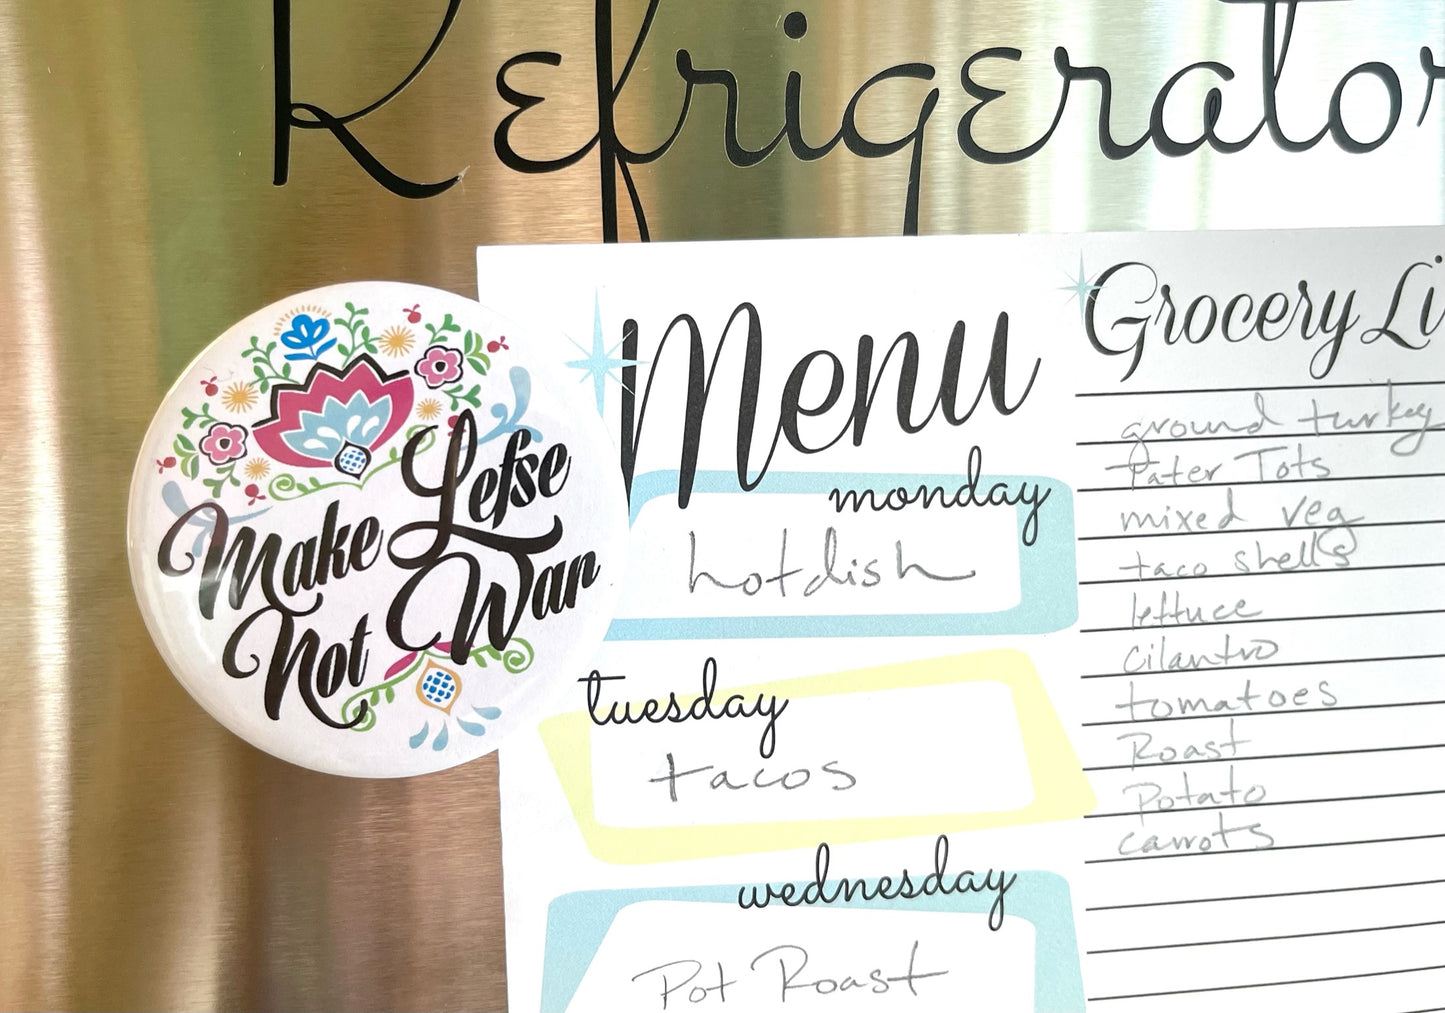 Refrigerator
Make Lefse
Not War
Menu
monday
hotdish
tuesday
tacos
wednesday
Pot Roast
Grocery Li
ground turkey
tater Tots
mixed veg
taco shells
lettuce
cilantro
tomatoes
Roast
Potato
carrots